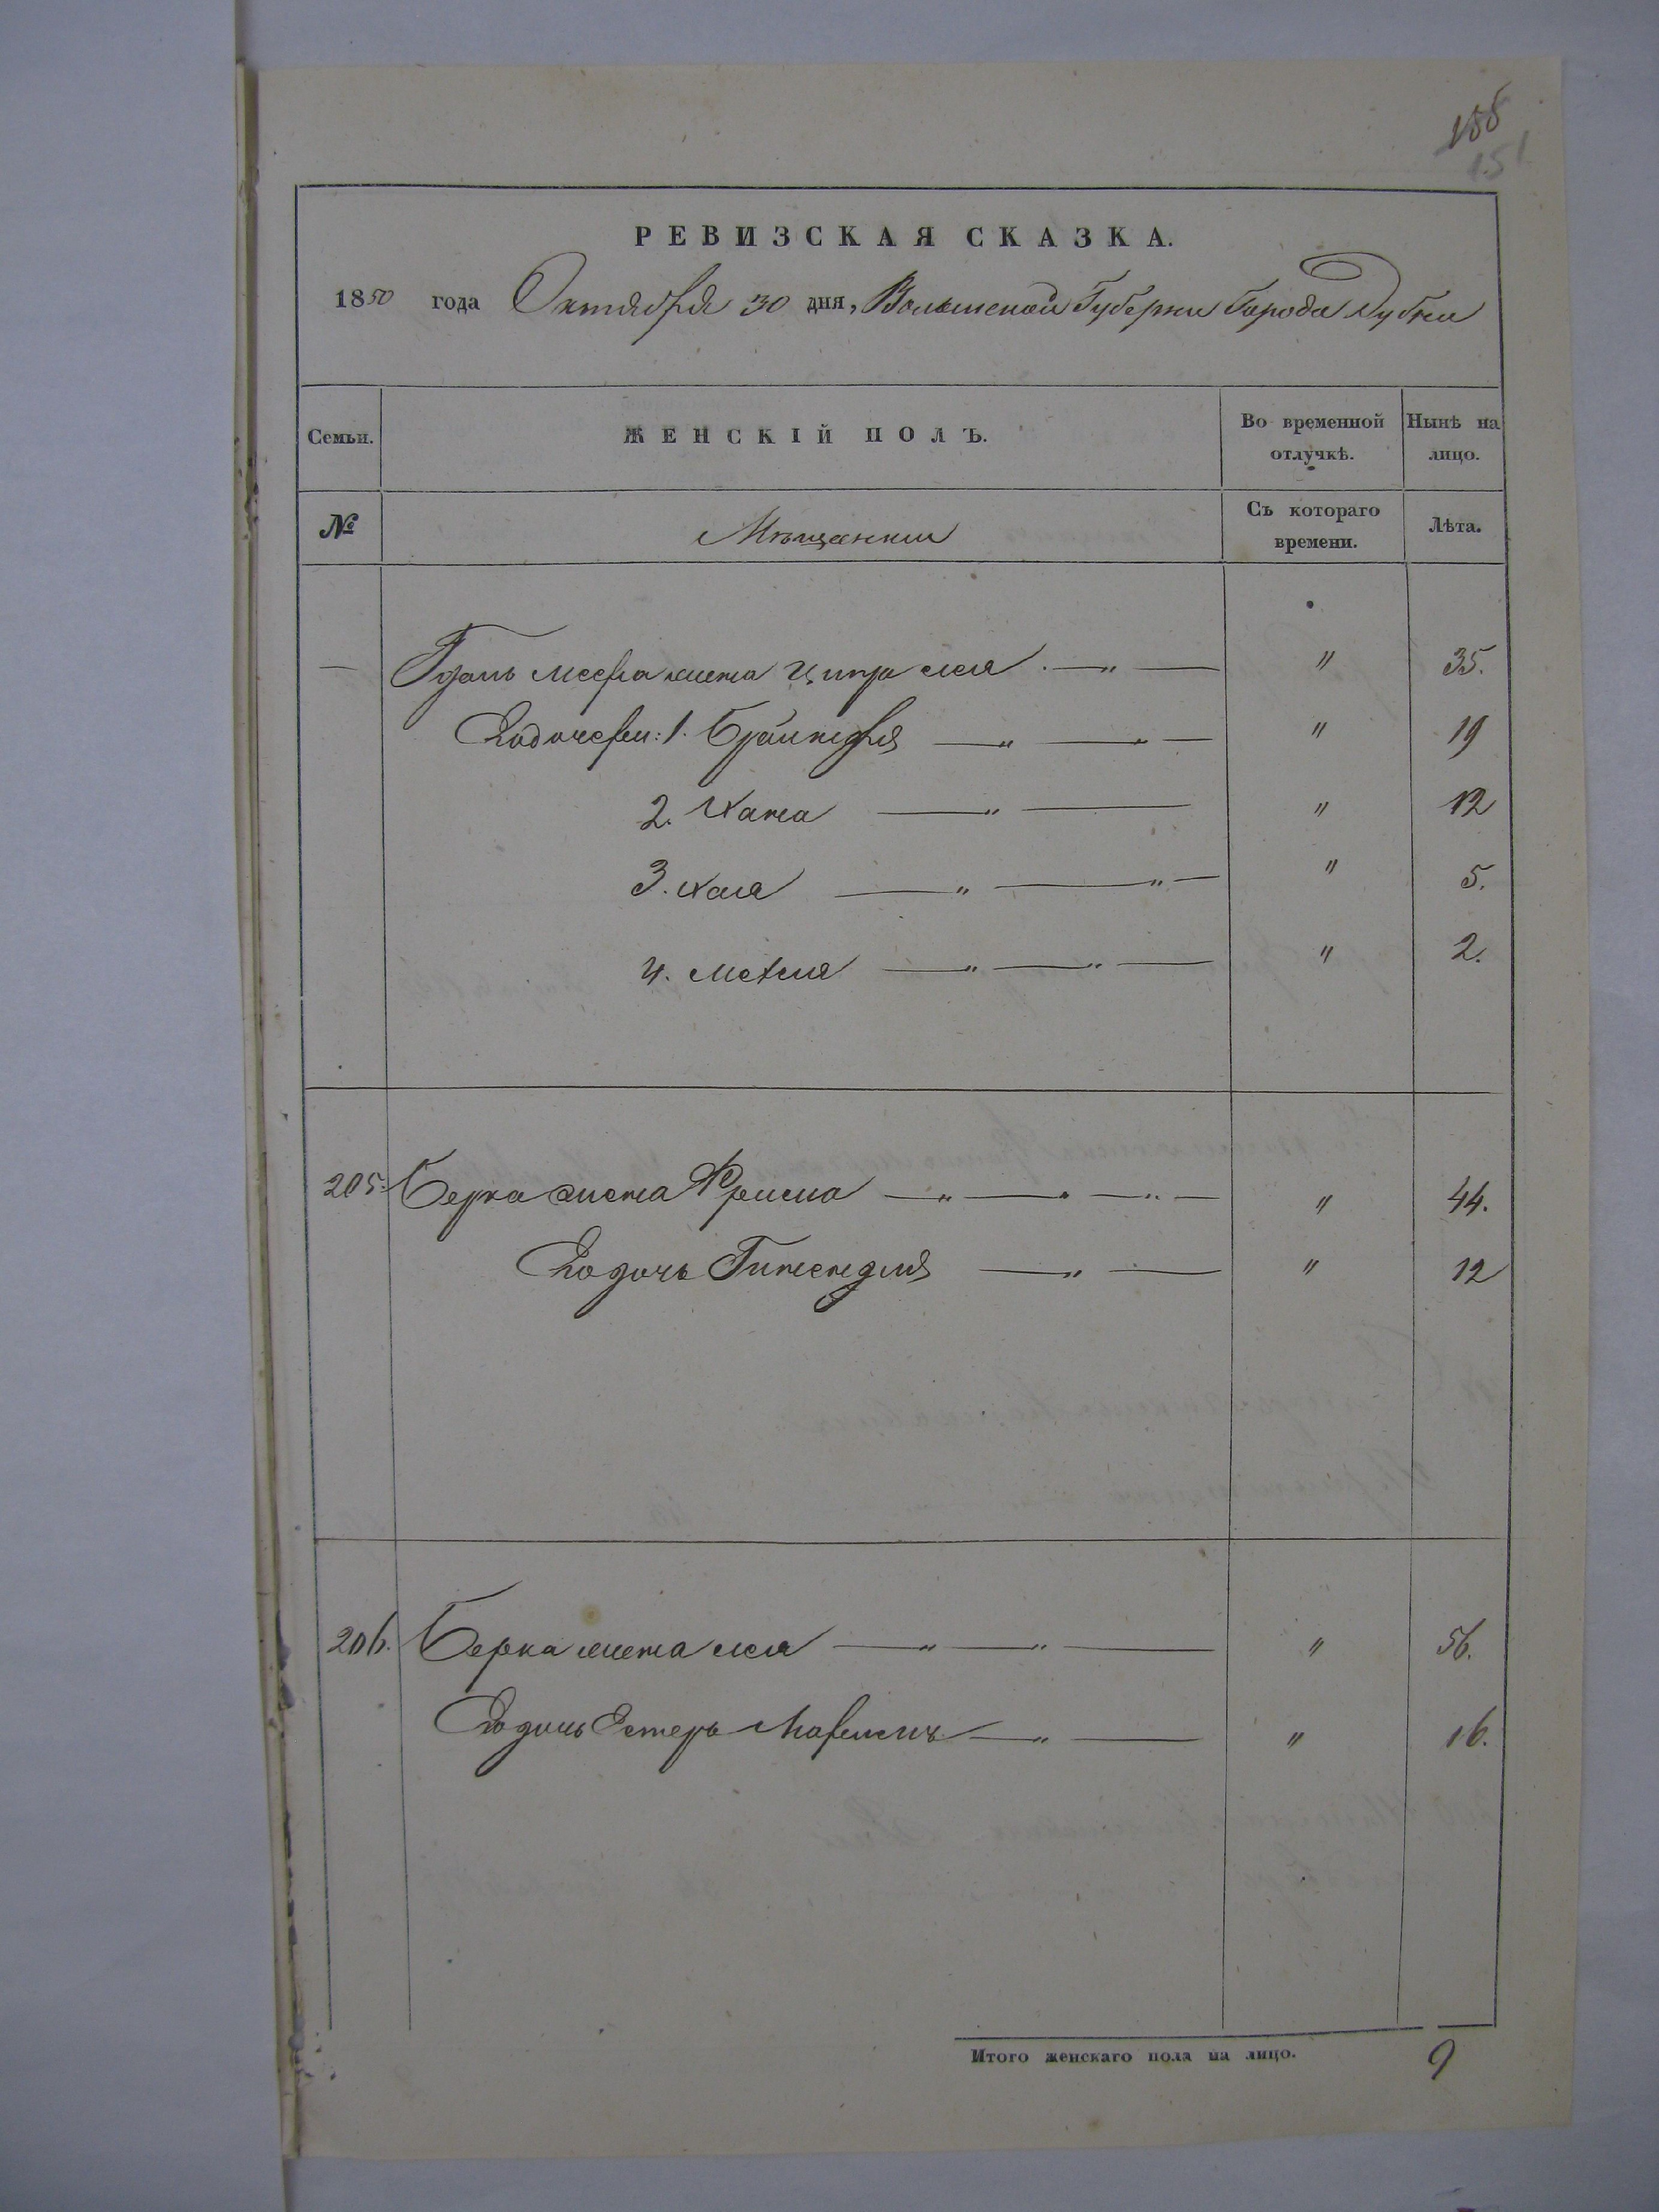 188
151
РЕВИЗСКАЯ СКАЗКА.
1850 года Октября 30 дня, Волынской Губернии Города Дубна
Семьи. ЖЕНСКІЙ ПОЛЪ. Во временной отлучкѣ. Нынѣ на лицо.
№ Мѣщанки Съ котораго времени. Лѣта.
— жена Ципра Лея — " — " 35.
Егодочери: 1. — " — " 19
2. Хана — " — " 12
3. Хая — " — " — " 5.
4. — " — " — " 2.
205. Берка жена Фрима — " — " — " — " 44.
Егодочь — " — " 12
206. Берка жена Лея — " — " — " 56.
Егодочь Естеръ — " — " 16.
Итого женскаго пола на лицо. 9